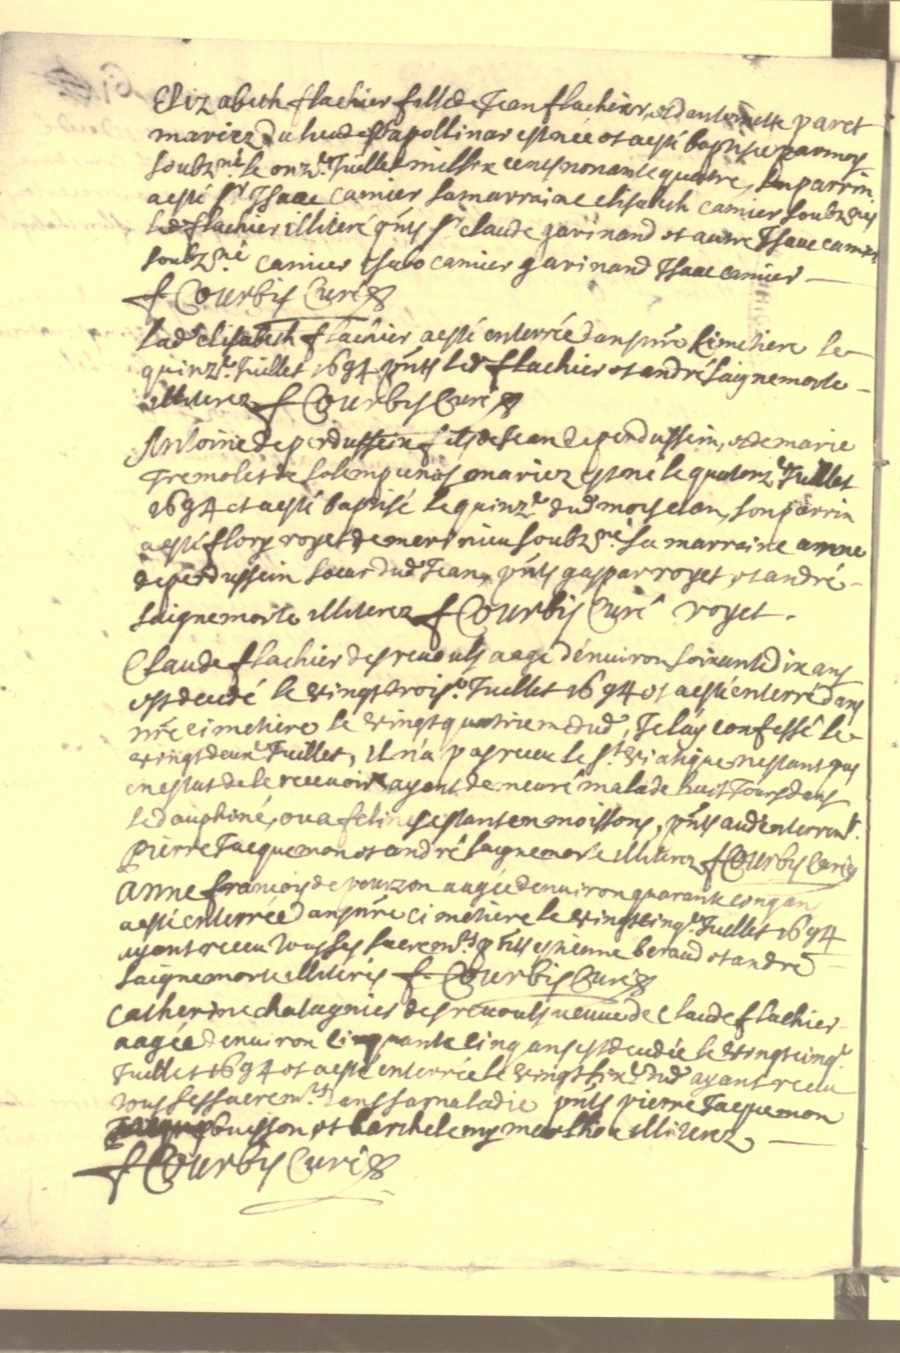 Elizabeth flachier fille de Jean flachier, et d'antoinette paret
mariez du lieu de St apollinar est née et a esté baptisée par moy
soubzné le onze Juillet mil six cens nonante quatre, son parrin
a esté Sr Isaac camier sa marraine elisabeth camier soubznés
led flachier illiteré pnts Sr claude garinand et autre Isaac camier
soubzné camier Isaac camier garinand Isaac camier
f Courbis Curé
lad elisabeth flachier a esté enterrée dans nre cimetiere le
quinze Juillet 1694 pnts led flachier et andré saignemorte
illiterez f Courbis Curé
Antoine deperdussein fils de Jean deperdussein, et de marie
Tremolet de mariez est né le quatorze Juillet
1694 et a esté baptisé le quinze dud moys et an, son parrin
a esté flory royet de soubzné sa marraine anne
deperdussein soeur dud Jean, pnts gaspar royet, et andré
saignemorte illiterez f Courbis Curé royet.
Claude flachier des reuouls aagé d'enuiron soixante dix ans
est decedé le vingt trois Juillet 1694 et a esté enterré dans
nre cimetiere le vingt quatrieme dud, Je l'ay confessé le
vingt deux Juillet, Il n'a pas receu le St viatique n'estant pas
en estat de le recevoir ayant demeuré malade huit Jours dans
le dauphiné, ou a estant en moissons, pnts aud enterremt
pierre Jacquemon et andré saignemorte illiterez f Courbis Curé
anne françois de pourzon aagée d'enuiron quarante cinq ans
a esté enterrée dans nre cimetiere le vingt cinq Juillet 1694
ayant receu tous ses sacremts pnts estienne beraud et andré
saignemorte illiterés f Courbis Curé
Catherine chatagnier des reuouls veuve de Claude flachier
aagée d'enuiron cinquante cinq ans est decedée le vingt cinq
Juillet 1694 et a esté enterrée le vingt six dud ayant receu
tous les sacremts dans sa maladie pnts pierre Jacquemon
buisson et barthelemy illiterez
f Courbis Curé